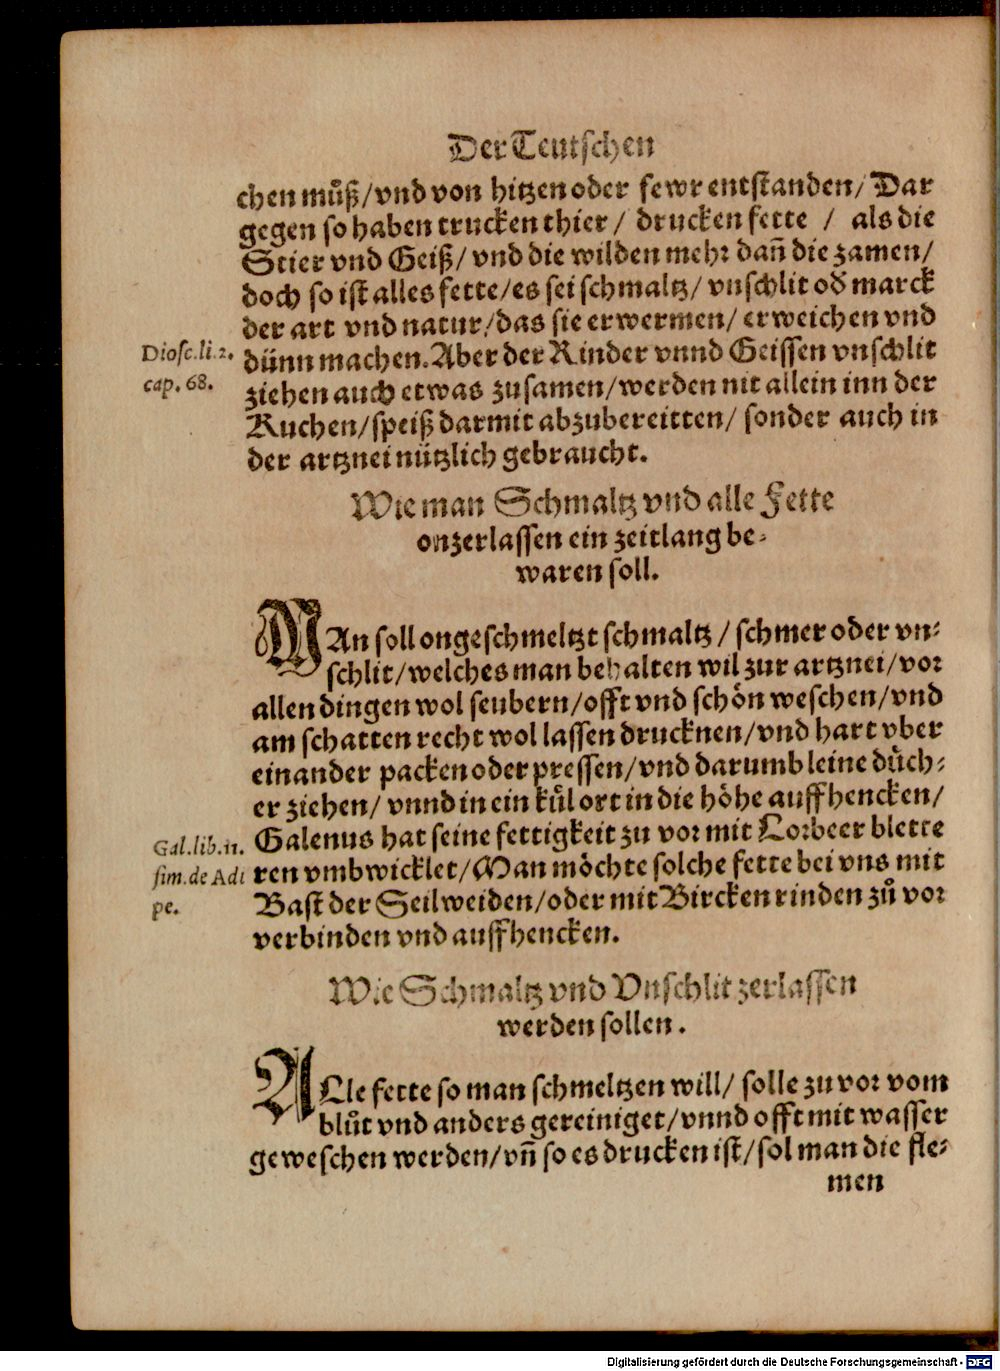 Der Teutschen
chen můß/vnd von hitzen oder fewr entstanden/ Dar
gegen so haben trucken thier / drucken fette / als die
Stier vnd Geiß/ vnd die wilden mehr dañ die zamen/
doch so ist alles fette/es sei schmaltz/ vnschlit od marck
der art vnd natur/das sie erwermen/ erweichen vnd
Diosc.li.2.
cap. 68.
dünn machen. Aber der Rinder vnnd Geissen vnschlit
ziehen auch etwas zusamen/werden nit allein inn der
Kuchen/speiß darmit abzubereitten/ sonder auch in
der artznei nützlich gebraucht.
Wie man Schmaltz vnd alle Fette
onzerlassen ein zeitlang be-
waren soll.
MAn soll ongeschmeltzt schmaltz / schmer oder vn-
schlit/welches man behalten wil zur artznei/vor
allen dingen wol seubern/offt vnd schön weschen/vnd
am schatten recht wol lassen drucknen/vnd hart vber
einander packen oder pressen/vnd darumb leine düch-
er ziehen/ vnnd in ein kül ort in die höhe auffhencken/
Gal.lib.11.
sim.de Adi
pe.
Galenus hat seine fettigkeit zu vor mit Lorbeer blette
ren vmbwicklet/Man möchte solche fette bei vns mit
Bast der Seilweiden/oder mit Bircken rinden zů vor
verbinden vnd auffhencken.
Wie Schmaltz vnd Vnschlit zerlassen
werden sollen.
ALle fette so man schmeltzen will/ solle zu vor vom
blůt vnd anders gereiniget/vnnd offt mit wasser
geweschen werden/vñ so es drucken ist/sol man die fle-
men
Digitalisierung gefördert durch die Deutsche Forschungsgemeinschaft - DFG